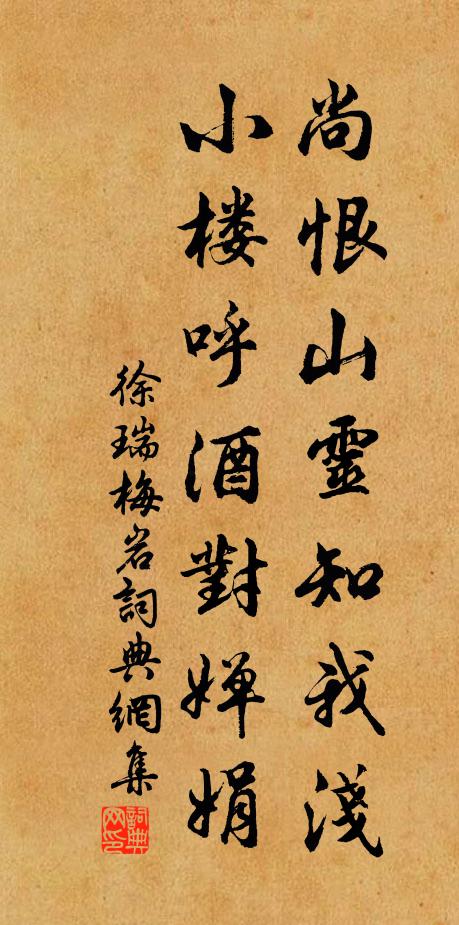 尚恨山靈知我淺
小楼呼酒對婵娟
徐瑞梅岩詞典網集
詞典网印